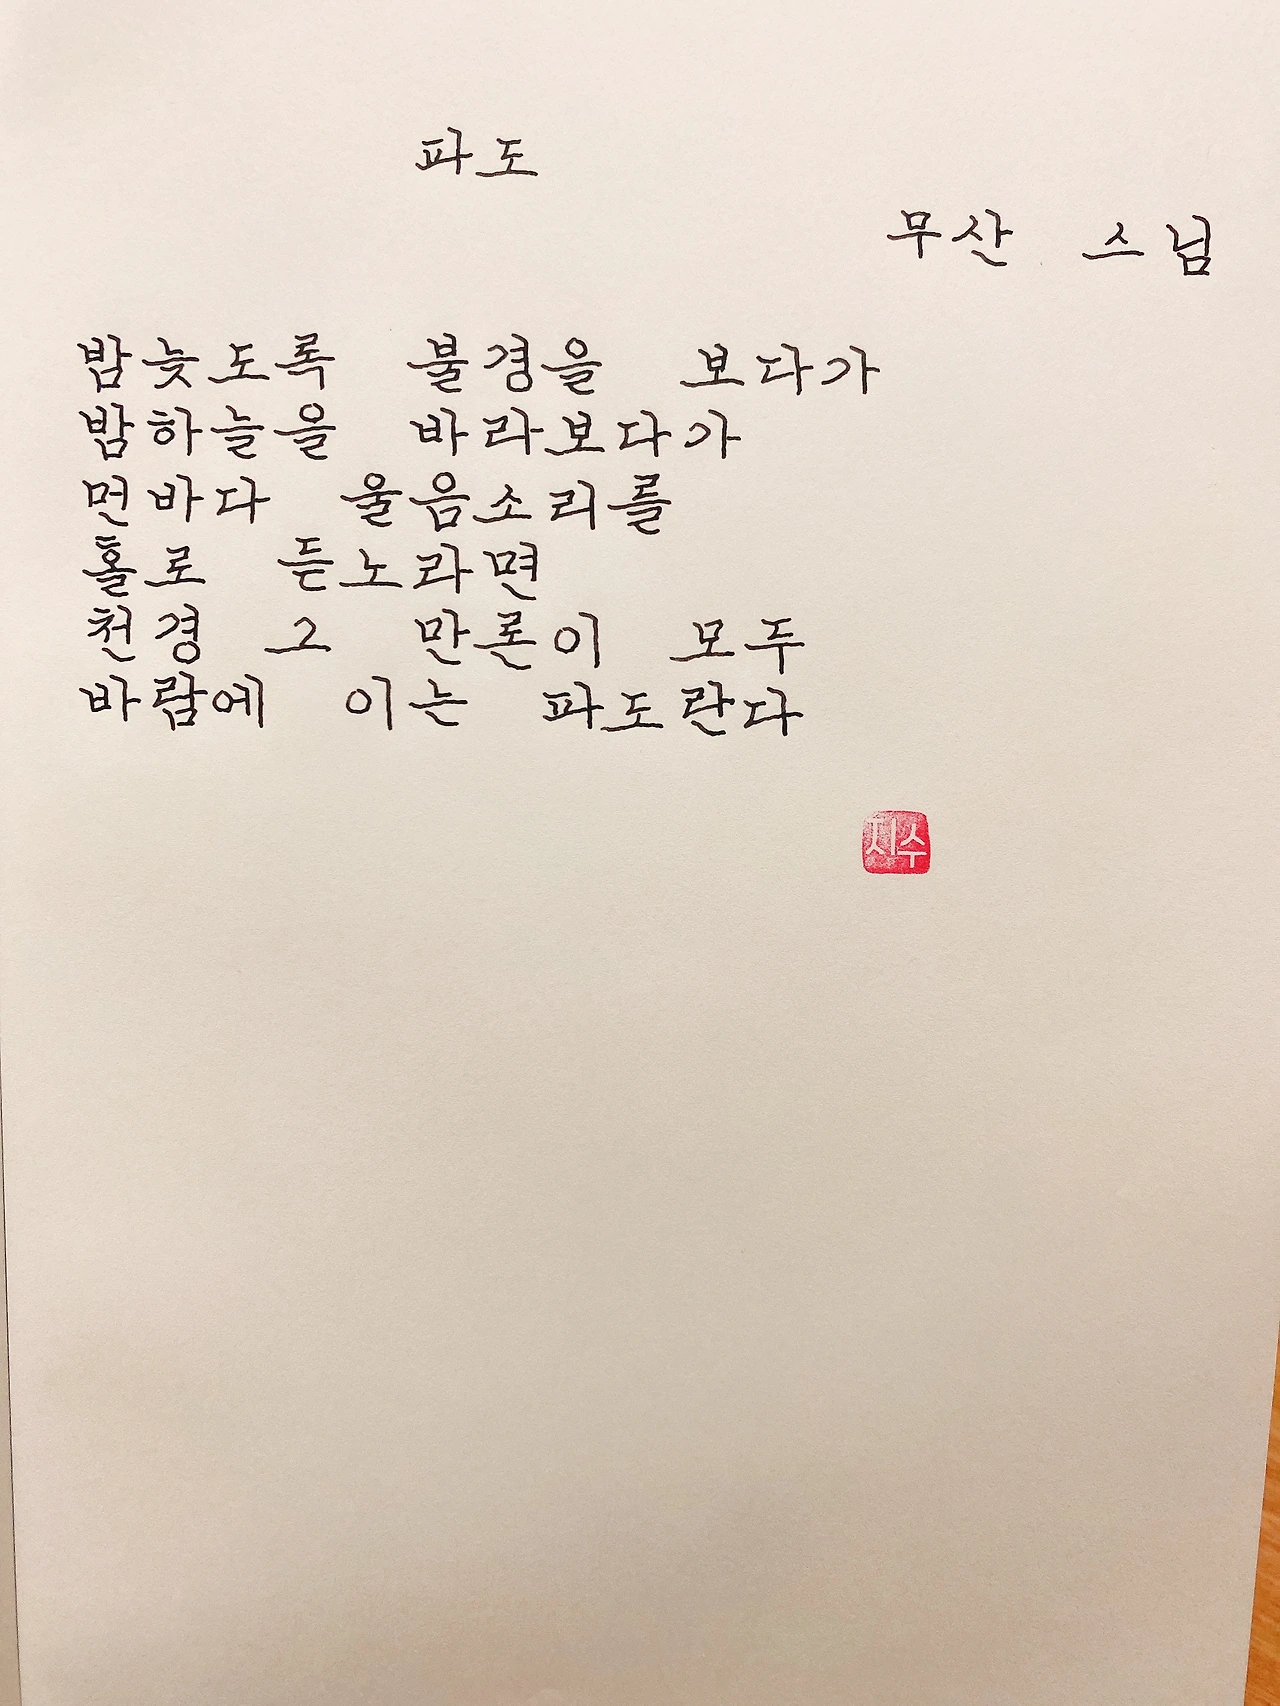 파도
무산 스님
밤늦도록 불경을 보다가
밤하늘을 바라보다가
먼바다 울음소리를
홀로 듣노라면
천경 그 만론이 모두
바람에 이는 파도란다
지수